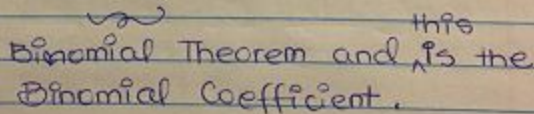 Binomial Theorem and this is the
Binomial Coefficient.